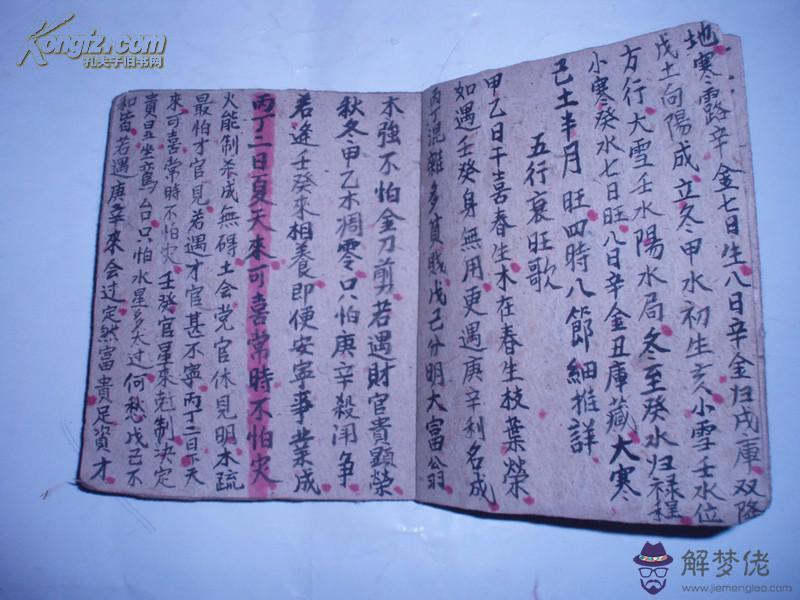 地寒露辛金七日生八日辛金归戌庫双降
戊土向陽成立冬甲水初生亥小雪壬水位
方行大雪壬水陽水局冬至癸水归禄程
小寒癸水七日旺八日辛金丑庫藏大寒
己土半月旺四時八節細推詳
五行衰旺歌
甲乙日干喜春生木在春生枝葉榮
如遇壬癸身無用更遇庚辛利名成
丙丁混雜多貧賤戊己分明大富公羽
木強不怕金刀剪若遇財官貴顯榮
秋冬甲乙木凋零只怕庚辛殺洞争
若逢壬癸來相養即便安寧事業成
丙丁二日夏天來可喜常時不怕灾
火能制杀成無碍土会党官休見明木疏
最怕才官見若遇才官甚不寧丙丁二日下天
來可喜常時不怕灾壬癸官星來尅制决定
貴显坐鸾台只怕水星多太过何愁戊己不
和皆若遇庚辛來会过定然富貴足資才
Kongfz.com
孔夫子旧书网
解梦佬
www.jiemenglao.com